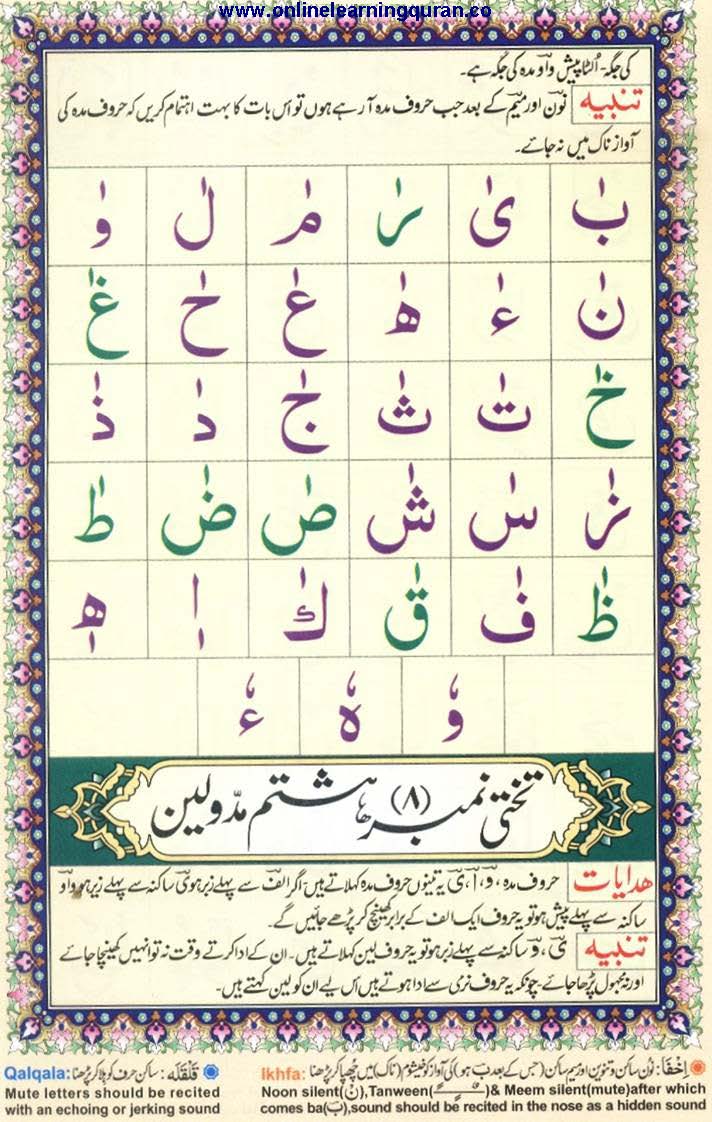 www.onlinelearningquran.co
کی جگہ۔ اُلٹا پیش واؤ مدہ کی جگہ ہے۔
تنبیہ نون اور میم کے بعد جب حروف مدہ آ رہے ہوں تو اس بات کا بہت اہتمام کریں کہ حروف مدہ کی
آواز ناک میں نہ جائے۔
بٰ یٰ رٰ مٰ لٰ وٰ
نٰ ءٰ ھٰ عٰ حٰ غٰ
خٰ تٰ ثٰ جٰ دٰ ذٰ
زٰ سٰ شٰ صٰ ضٰ طٰ
ظٰ فٰ قٰ كٰ اٖ ھٖ
وٗ هٗ ءٗ
تختی نمبر (۸) ہشتم مدّ و لین
ھدایات حروف مدہ، و، ا، ی یہ تینوں حروف مدہ کہلاتے ہیں۔ اگر الف سے پہلے زبر ہو ی ساکنہ سے پہلے زیر ہو واو
ساکنہ سے پہلے پیش ہو تو یہ حروف ایک الف کے برابر کھینچ کر پڑھے جائیں گے۔
تنبیہ ی، و ساکنہ سے پہلے زبر ہو تو یہ حروف لین کہلاتے ہیں۔ ان کے ادا کرتے وقت نہ تو انہیں کھینچا جائے
اور نہ مجہول پڑھا جائے۔ چونکہ یہ حروف نرمی سے ادا ہوتے ہیں اس لیے ان کو لین کہتے ہیں۔
اِخْفَا: نون ساکن و تنوین اور میم ساکن (جس کے بعد بَ ہو) کی آواز کو خیشوم (ناک) میں چھپا کر پڑھنا Ikhfa:
Noon silent(نْ),Tanween(ـًـٍـٌ)& Meem silent(mute)after which
comes ba(بَ),sound should be recited in the nose as a hidden sound
قَلْقَلَه: ساکن حرف کو ہلا کر پڑھنا Qalqala:
Mute letters should be recited
with an echoing or jerking sound